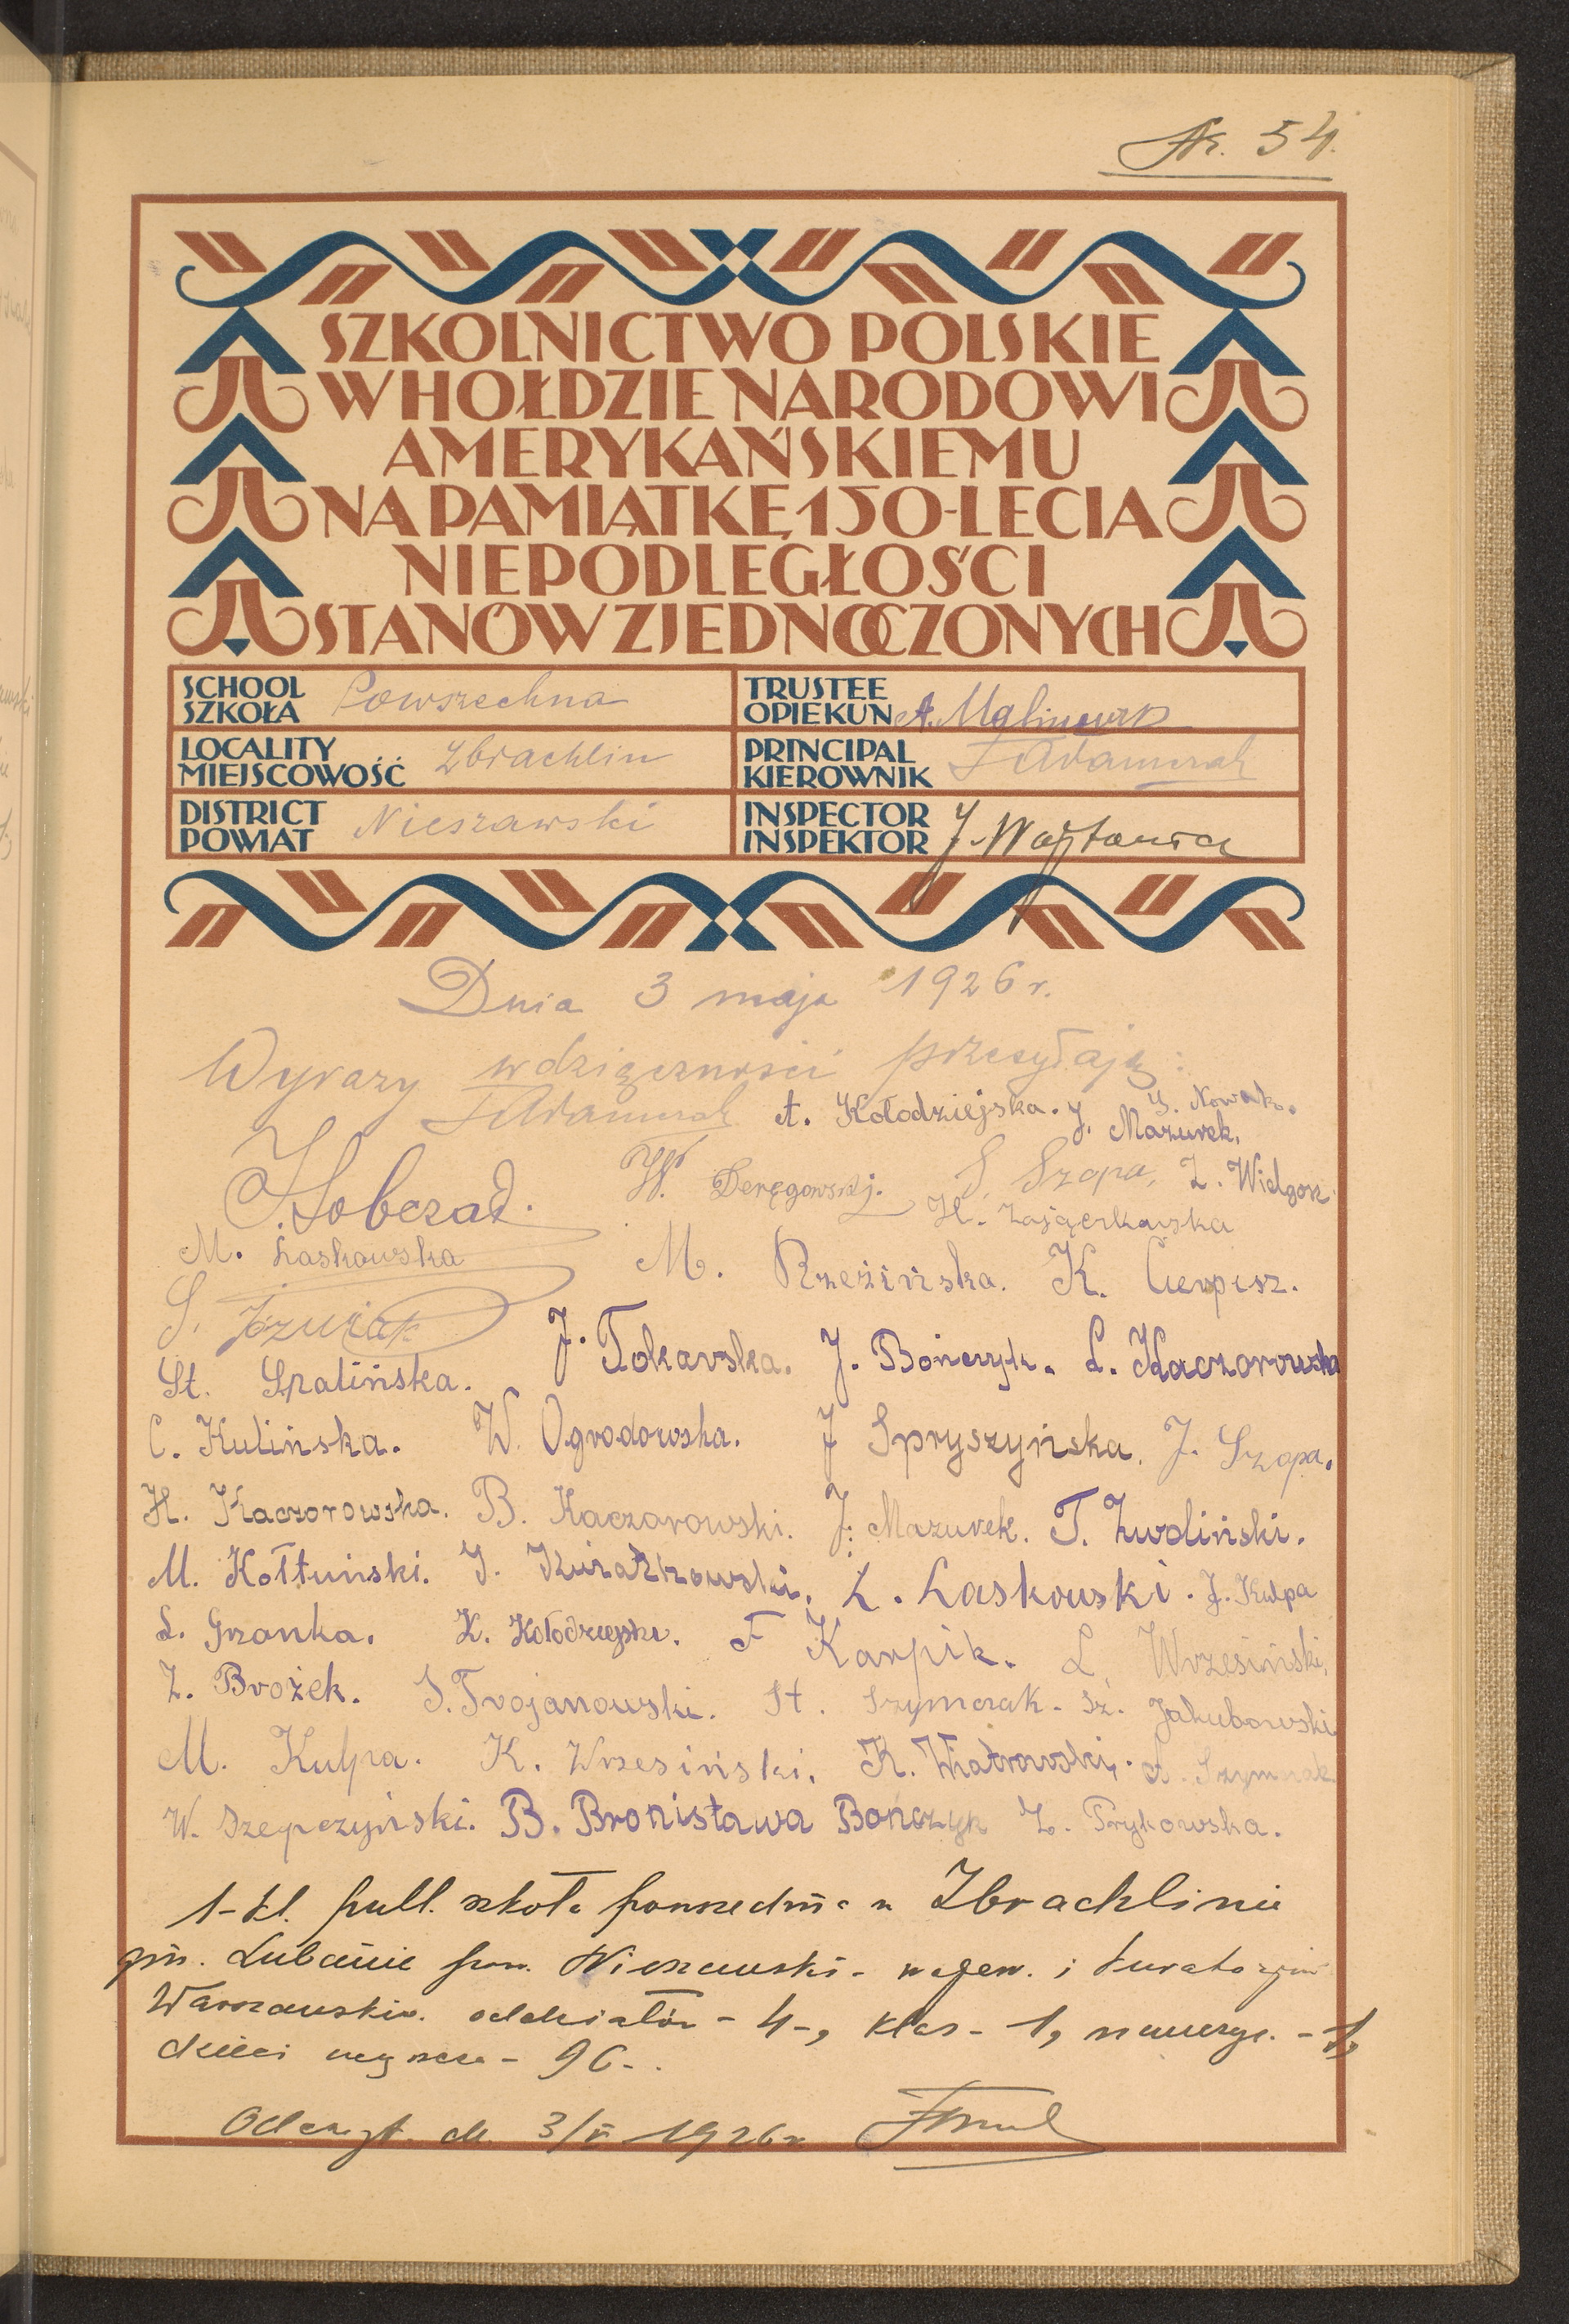 Nr. 54.
SZKOLNICTWO POLSKIE
W HOŁDZIE NARODOWI
AMERYKAŃSKIEMU
NA PAMIĄTKĘ 150-LECIA
NIEPODLEGŁOŚCI
STANÓW ZJEDNOCZONYCH
SCHOOL SZKOŁA Powszechna
TRUSTEE OPIEKUN A. Malinowsk
LOCALITY MIEJSCOWOŚĆ Zbrachlin
PRINCIPAL KIEROWNIK F Adamczak
DISTRICT POWIAT Nieszawski
INSPECTOR INSPEKTOR J. Wojtowicz
Dnia 3 maja 1926 r.
Wyrazy wdzięczności przesyłają:
F Adamczak A. Kołodziejska. J. Mazurek. J. Nowak.
J. Sobczad. W. Deręgowski. S. Szopa, Z. Widgorz.
M. Laskowska H. Zajączkowska
M. Rzezińska. K. Cierpisz.
S. Józwiak
J. Tokarska. J. Bończyk. L. Kaczorowska
St. Spalińska.
C. Kulińska. W. Ogrodowska. J Spryszyńska. J. Szopa.
H. Kaczorowska. B. Kaczorowski. J. Mazurek. T. Zwoliński.
M. Kołtuński. J. L. Laskowski. J. Kulpa
L. Gronka. K. Kołodziejski. F Karpik. L. Wrzesiński,
Z. Brożek. S. Trojanowski. St. Szymczak. Sz. Jakubowski
M. Kulpa. K. Wrzesiński. K. Wiatrowski. A. Szymczak
W. Szepczyński. B. Bronisława Bończyk Z. Prykowska.
1-kl. publ. szkoła powszechna w Zbrachlinie
gm. Lubanie pow. Nieszawski - wojew. i kuratorjum
Warszawskie. oddziałów - 4-, klas - 1, nauczyc. - 1,
dzieci 96-.
dn. 3/V 1926 r